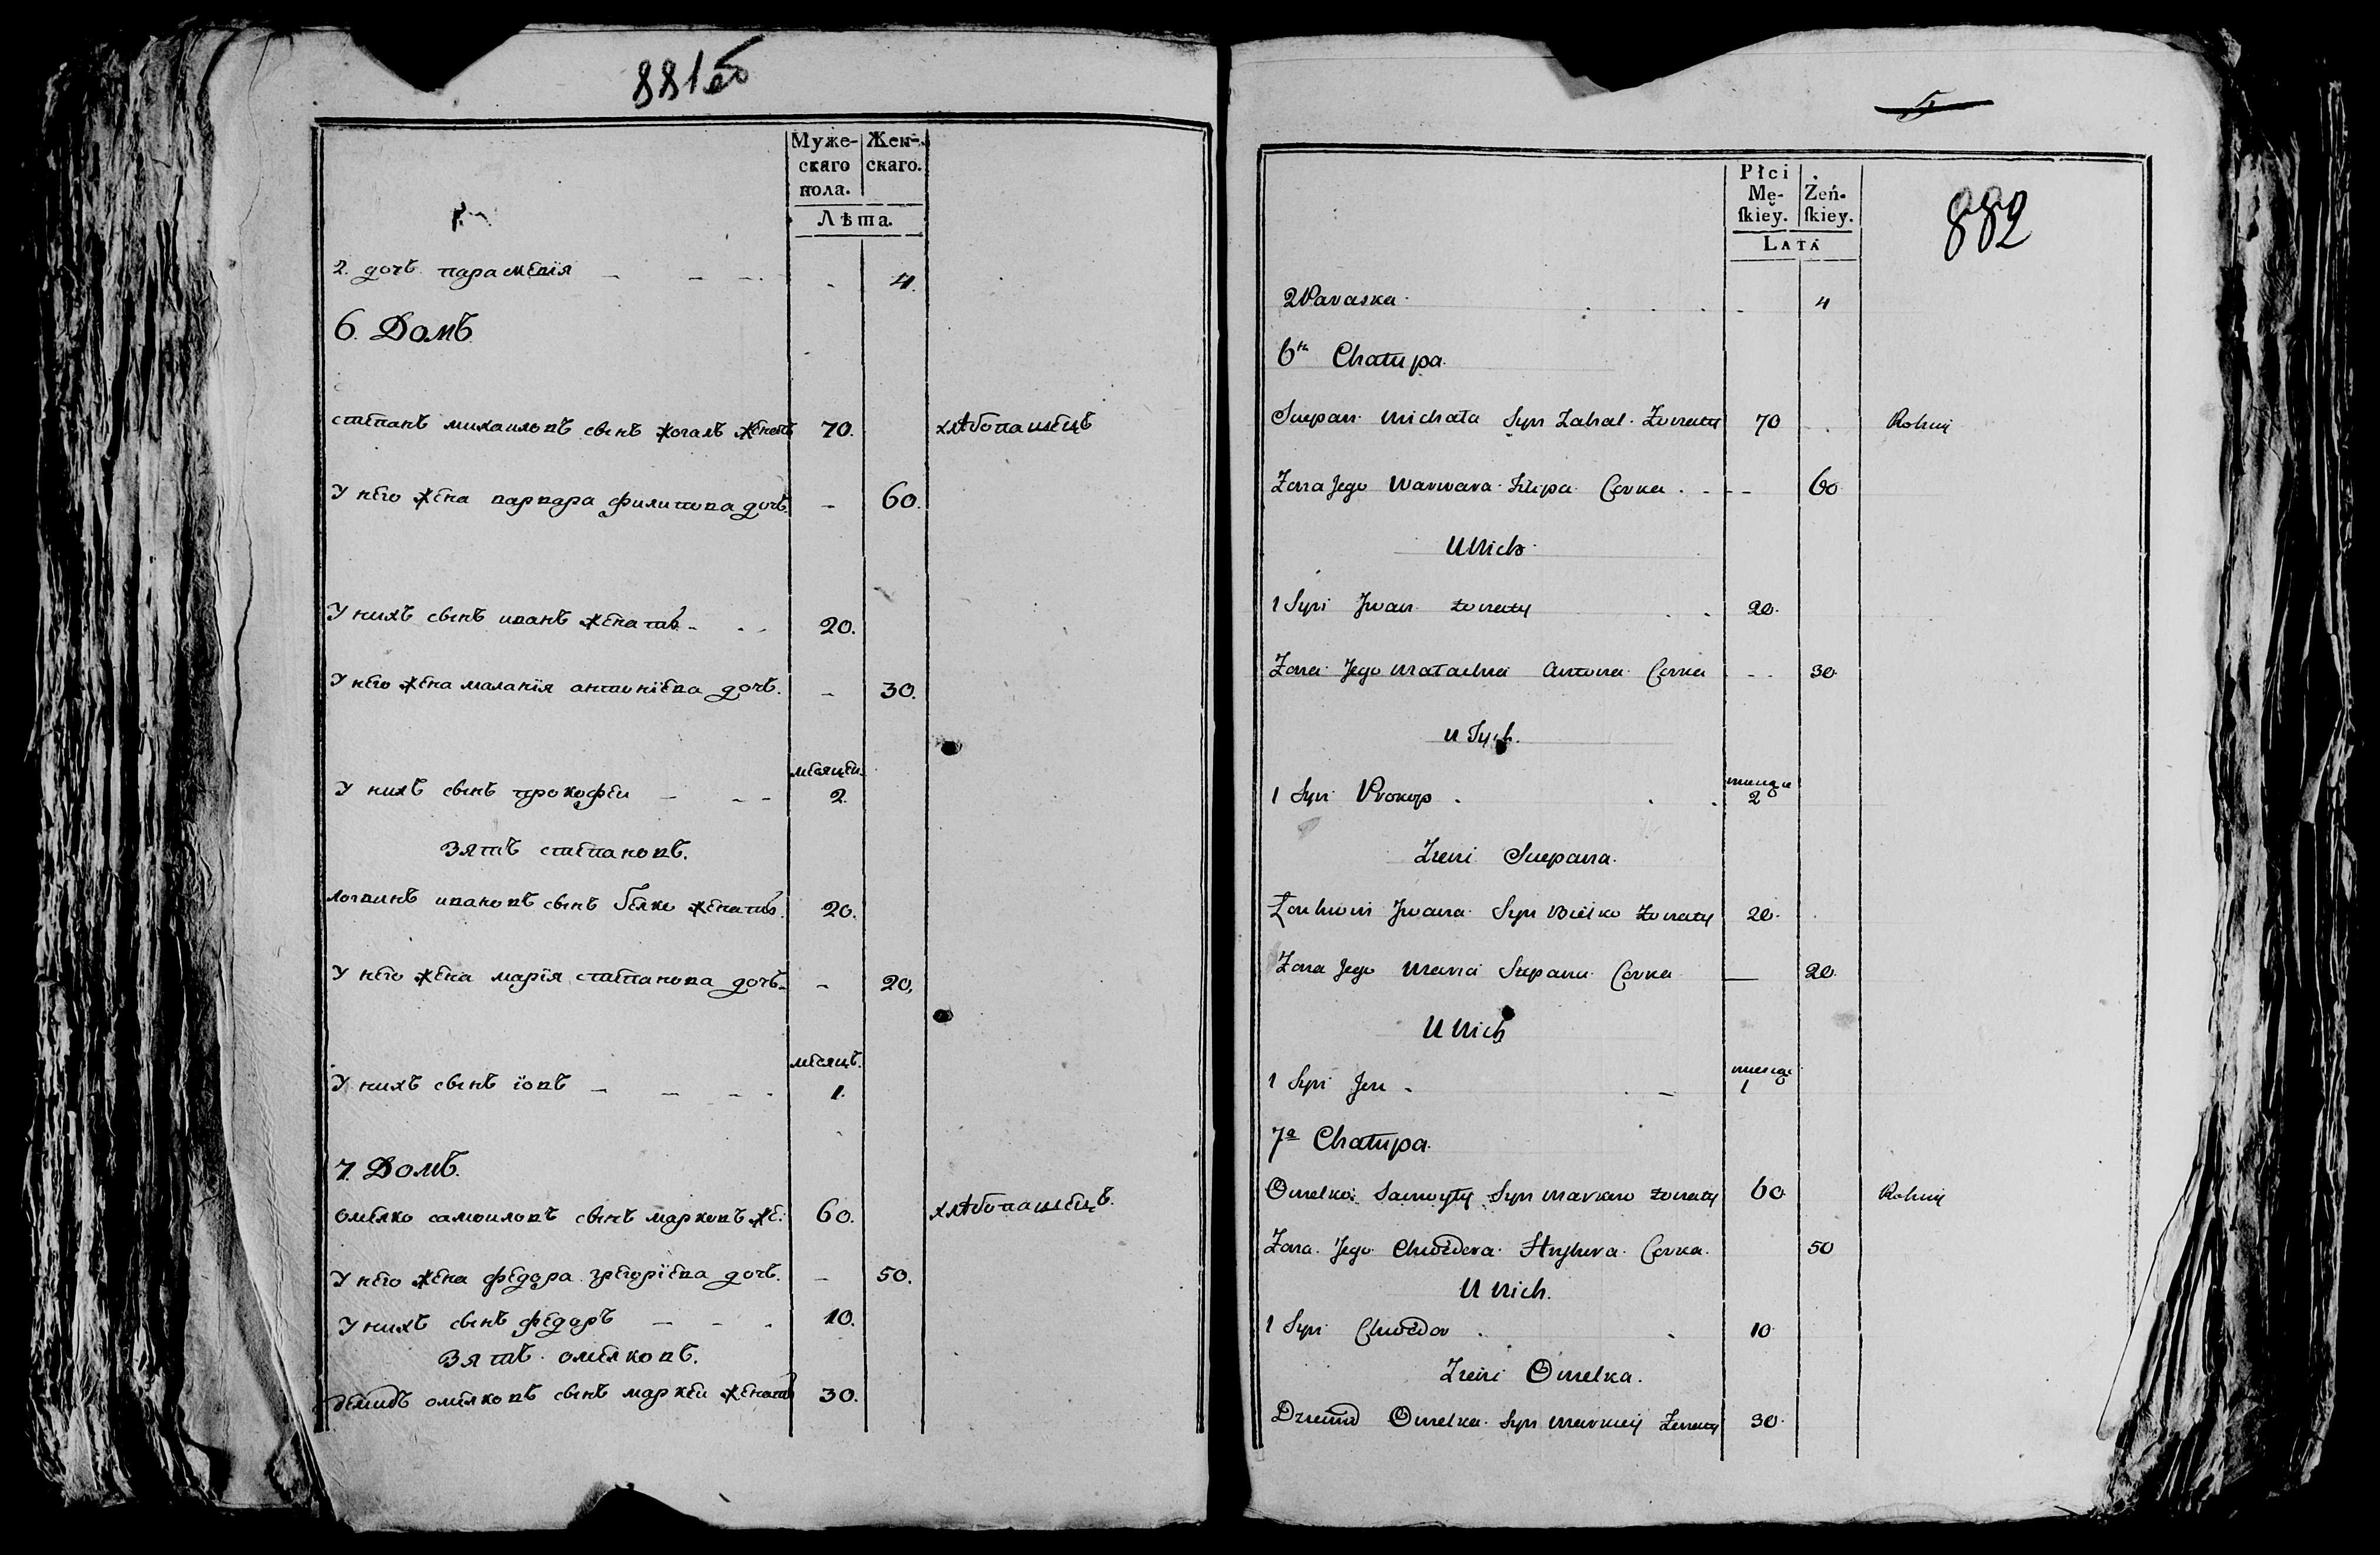 881об
Муже-
скаго
пола.
Жен-
скаго.
Лѣта.
2. дочь парасмевія - - - - 4.
6. Домъ
степанъ михаиловъ сынъ жогалъ женатъ 70. хлѣбопашецъ
У него жена варвара филипова дочь. - 60.
У нихъ сынъ иванъ женатъ - - - 20.
У него жена маланія антоніева дочь. - 30.
месяцеи.
У нихъ сынъ прокофеи - - - 2.
Зять степановъ.
логвинъ ивановъ сынъ белко женатъ. 20.
У него жена марія степанова дочь - - 20.
месяцъ.
У нихъ сынъ іовъ - - - - 1.
7. Домъ.
омелко самоиловъ сынъ марковъ же: 60. хлѣбопашецъ.
У него жена федора грегоріева дочь. - 50.
У нихъ сынъ федоръ - - - 10.
Зять омелковъ.
демидъ омелковъ сынъ маркеи женатъ 30.
5
882
Płci
Mę-
skiey.
Żeń-
skiey.
LATA
2 Paraska - 4
6ta Chałupa
Sciepan Michała Syn Zahal Zonaty 70 Rolniy
Zona Jego Warwara Filipa Corka - - - 60
U Nich
1 Syn Jwan zonaty 20
Zona Jego Małachia Antona Corka - - 30
u Tych.
miesiące
1 Syn Prokop 2
Zienć Sciepana
Łonhwin Jwana Syn Bielko Zonaty 20
Zona Jego Maria Sciepana Corka — 20
U Nich
miesiąc
1 Syn Jou - 1
7a Chałupa
Omelko Samoyły Syn Markow zonaty 60 Rolniy
Zona Jego Chwiedora Hryhora Corka 50
U Nich.
1 Syn Chwiedor 10
Zienć Omelka.
Dziemid Omelka Syn Markiey Zonaty 30